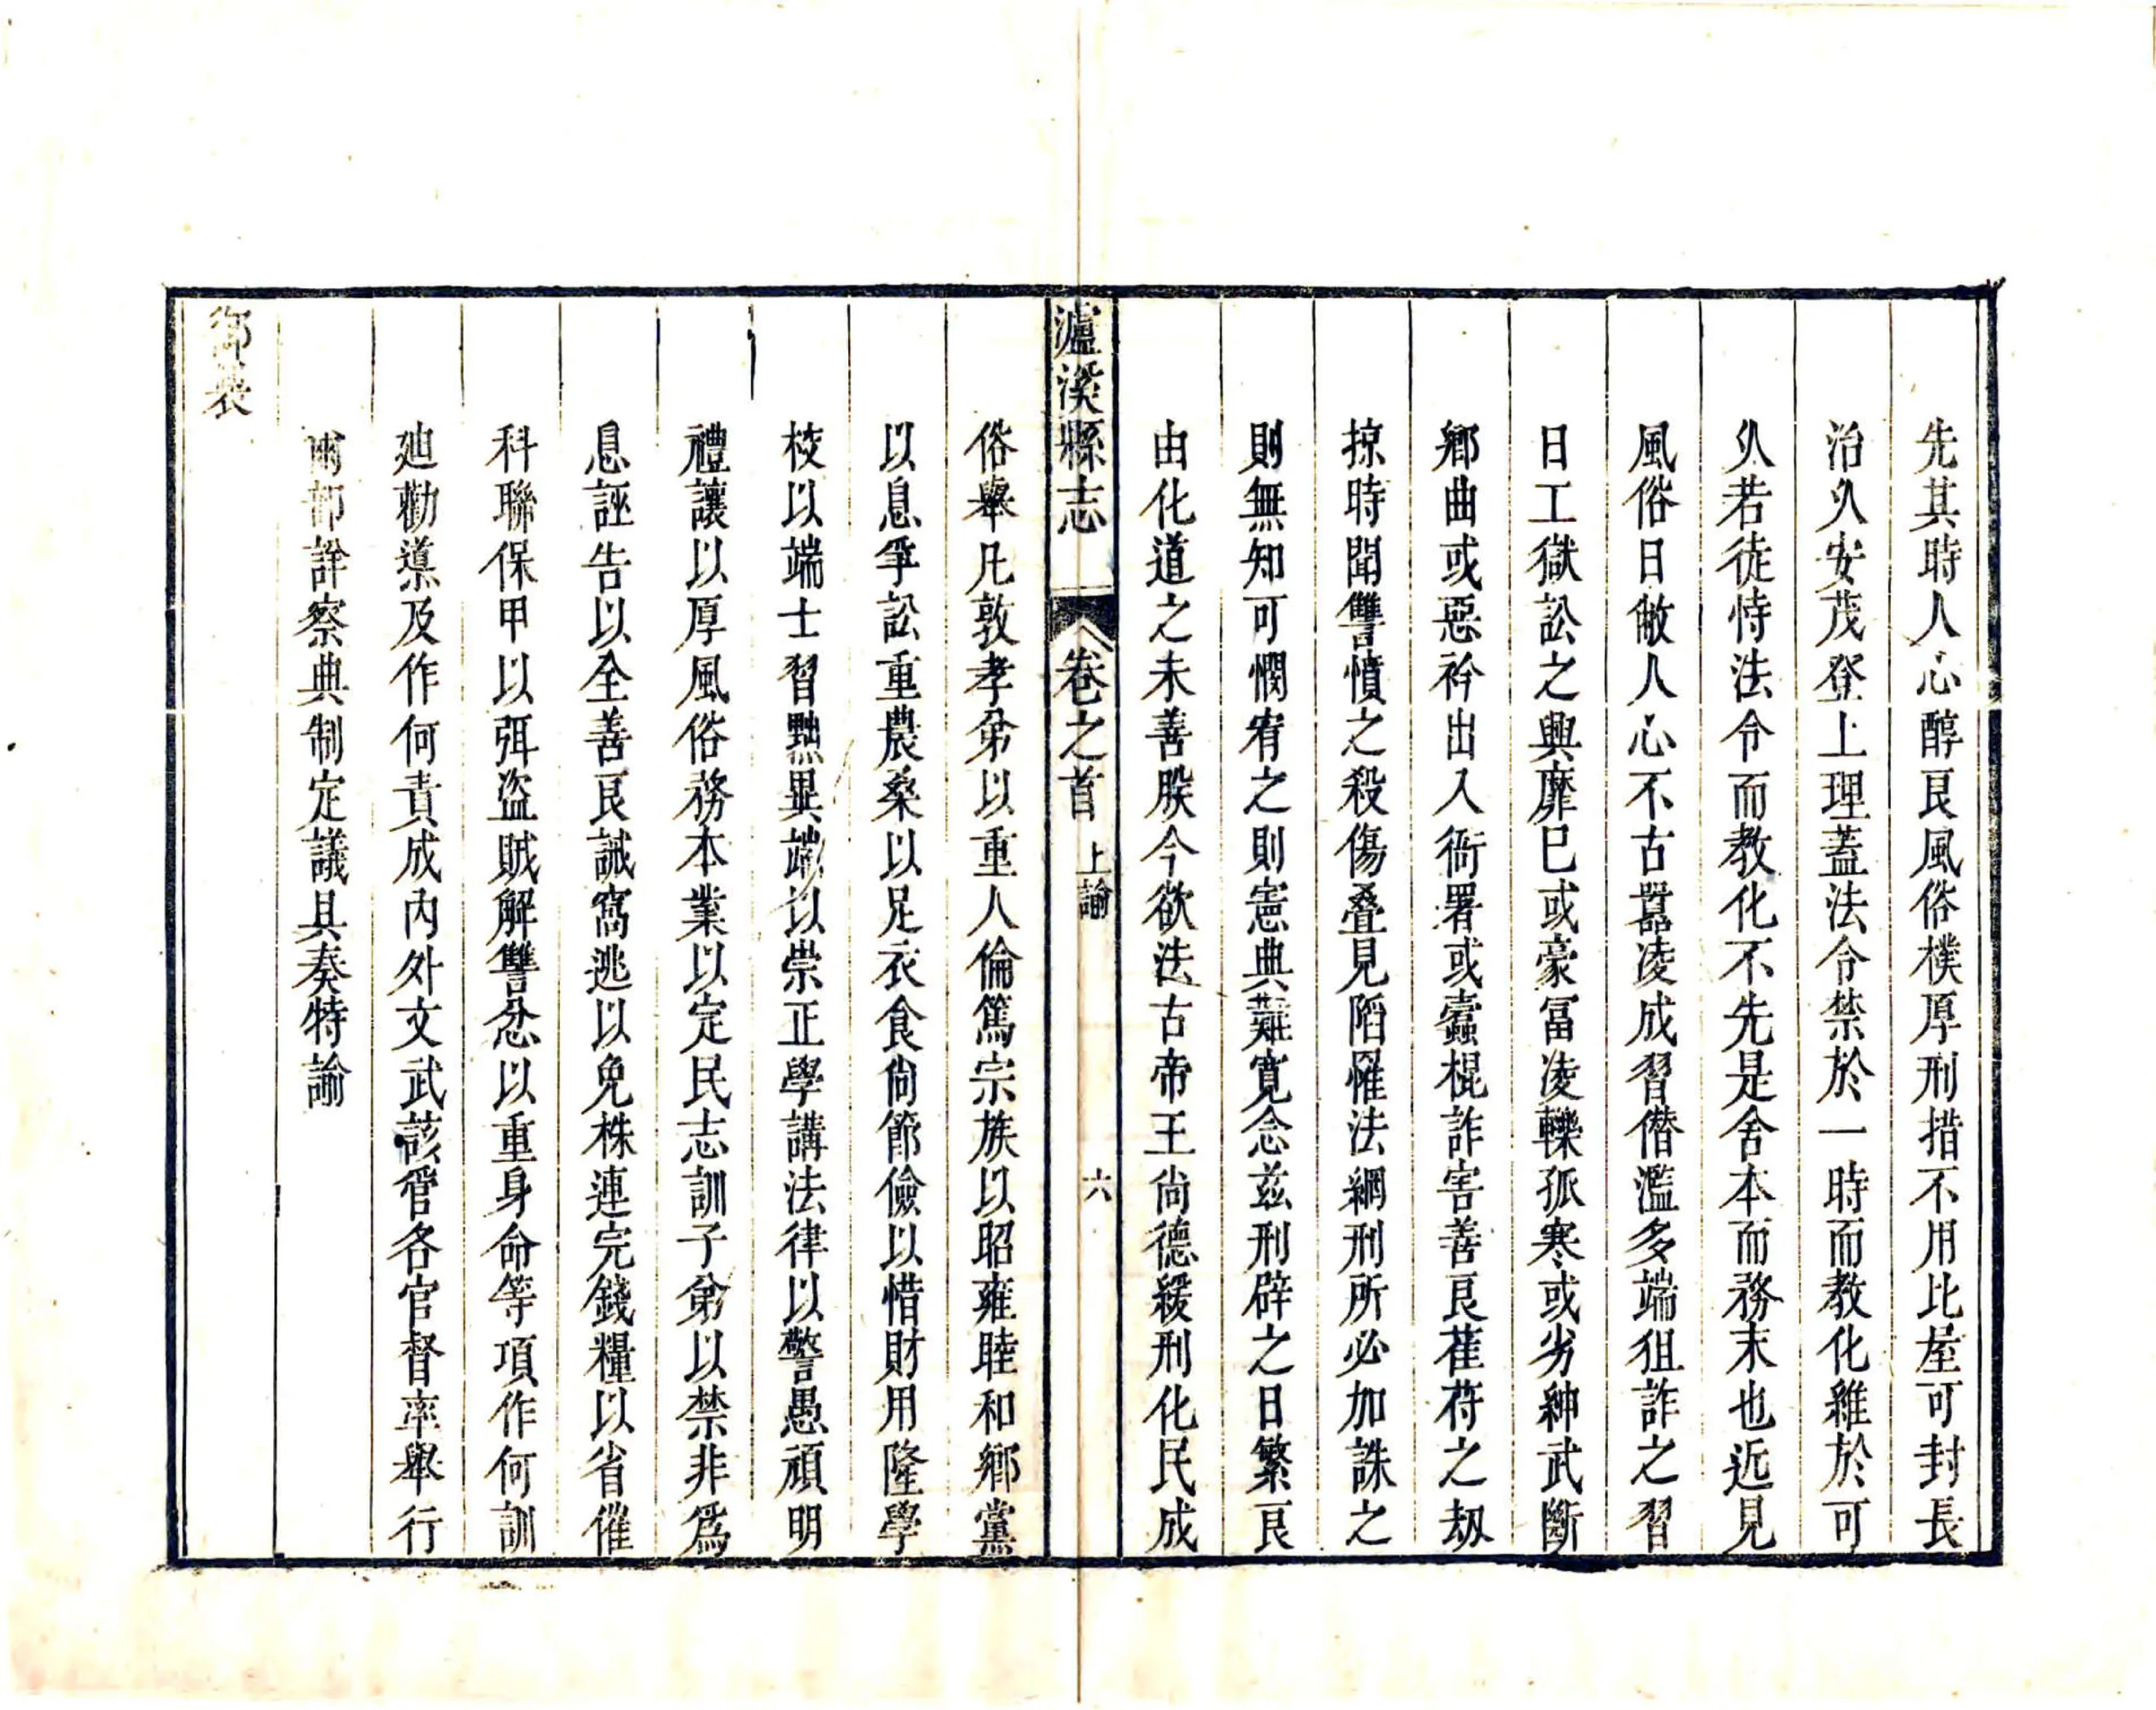 先其時人心醇良風俗樸厚刑措不用比屋可封長
治久安茂登上理蓋法令禁於一時而教化維於可
久若徒恃法令而教化不先是舍本而務末也近見
風俗日敝人心不古嚣凌成習僭濫多端狙詐之習
日工獄訟之興靡已或豪冨凌轢孤寒或劣紳武斷
鄉曲或惡衿出入衙署或蠹棍詐害善良萑苻之刼
掠時聞讐憤之殺傷叠見陷罹法網刑所必加誅之
則無知可憫宥之則憲典難寬念兹刑辟之日繁良
由化道之未善朕今欲法古帝王尚德緩刑化民成
瀘溪縣志 卷之首 上諭 六
俗舉凡敦孝弟以重人倫篤宗族以昭雍睦和鄉黨
以息爭訟重農桑以足衣食尚節儉以惜財用隆學
校以端士習黜異端以崇正學講法律以警愚頑明
禮讓以厚風俗務本業以定民志訓子弟以禁非爲
息誣告以全善良誡窩逃以免株連完錢糧以省催
科聯保甲以弭盜賊解讐忿以重身命等項作何訓
廸勸導及作何責成內外文武該管各官督率舉行
爾部詳察典制定議具奏特諭
御裝